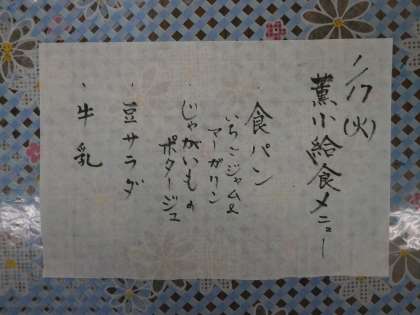 1/17(火)
薫小給食メニュー
・食パン
いちごジャム&
マーガリン
・じゃがいもの
ポタージュ
・豆サラダ
・牛乳